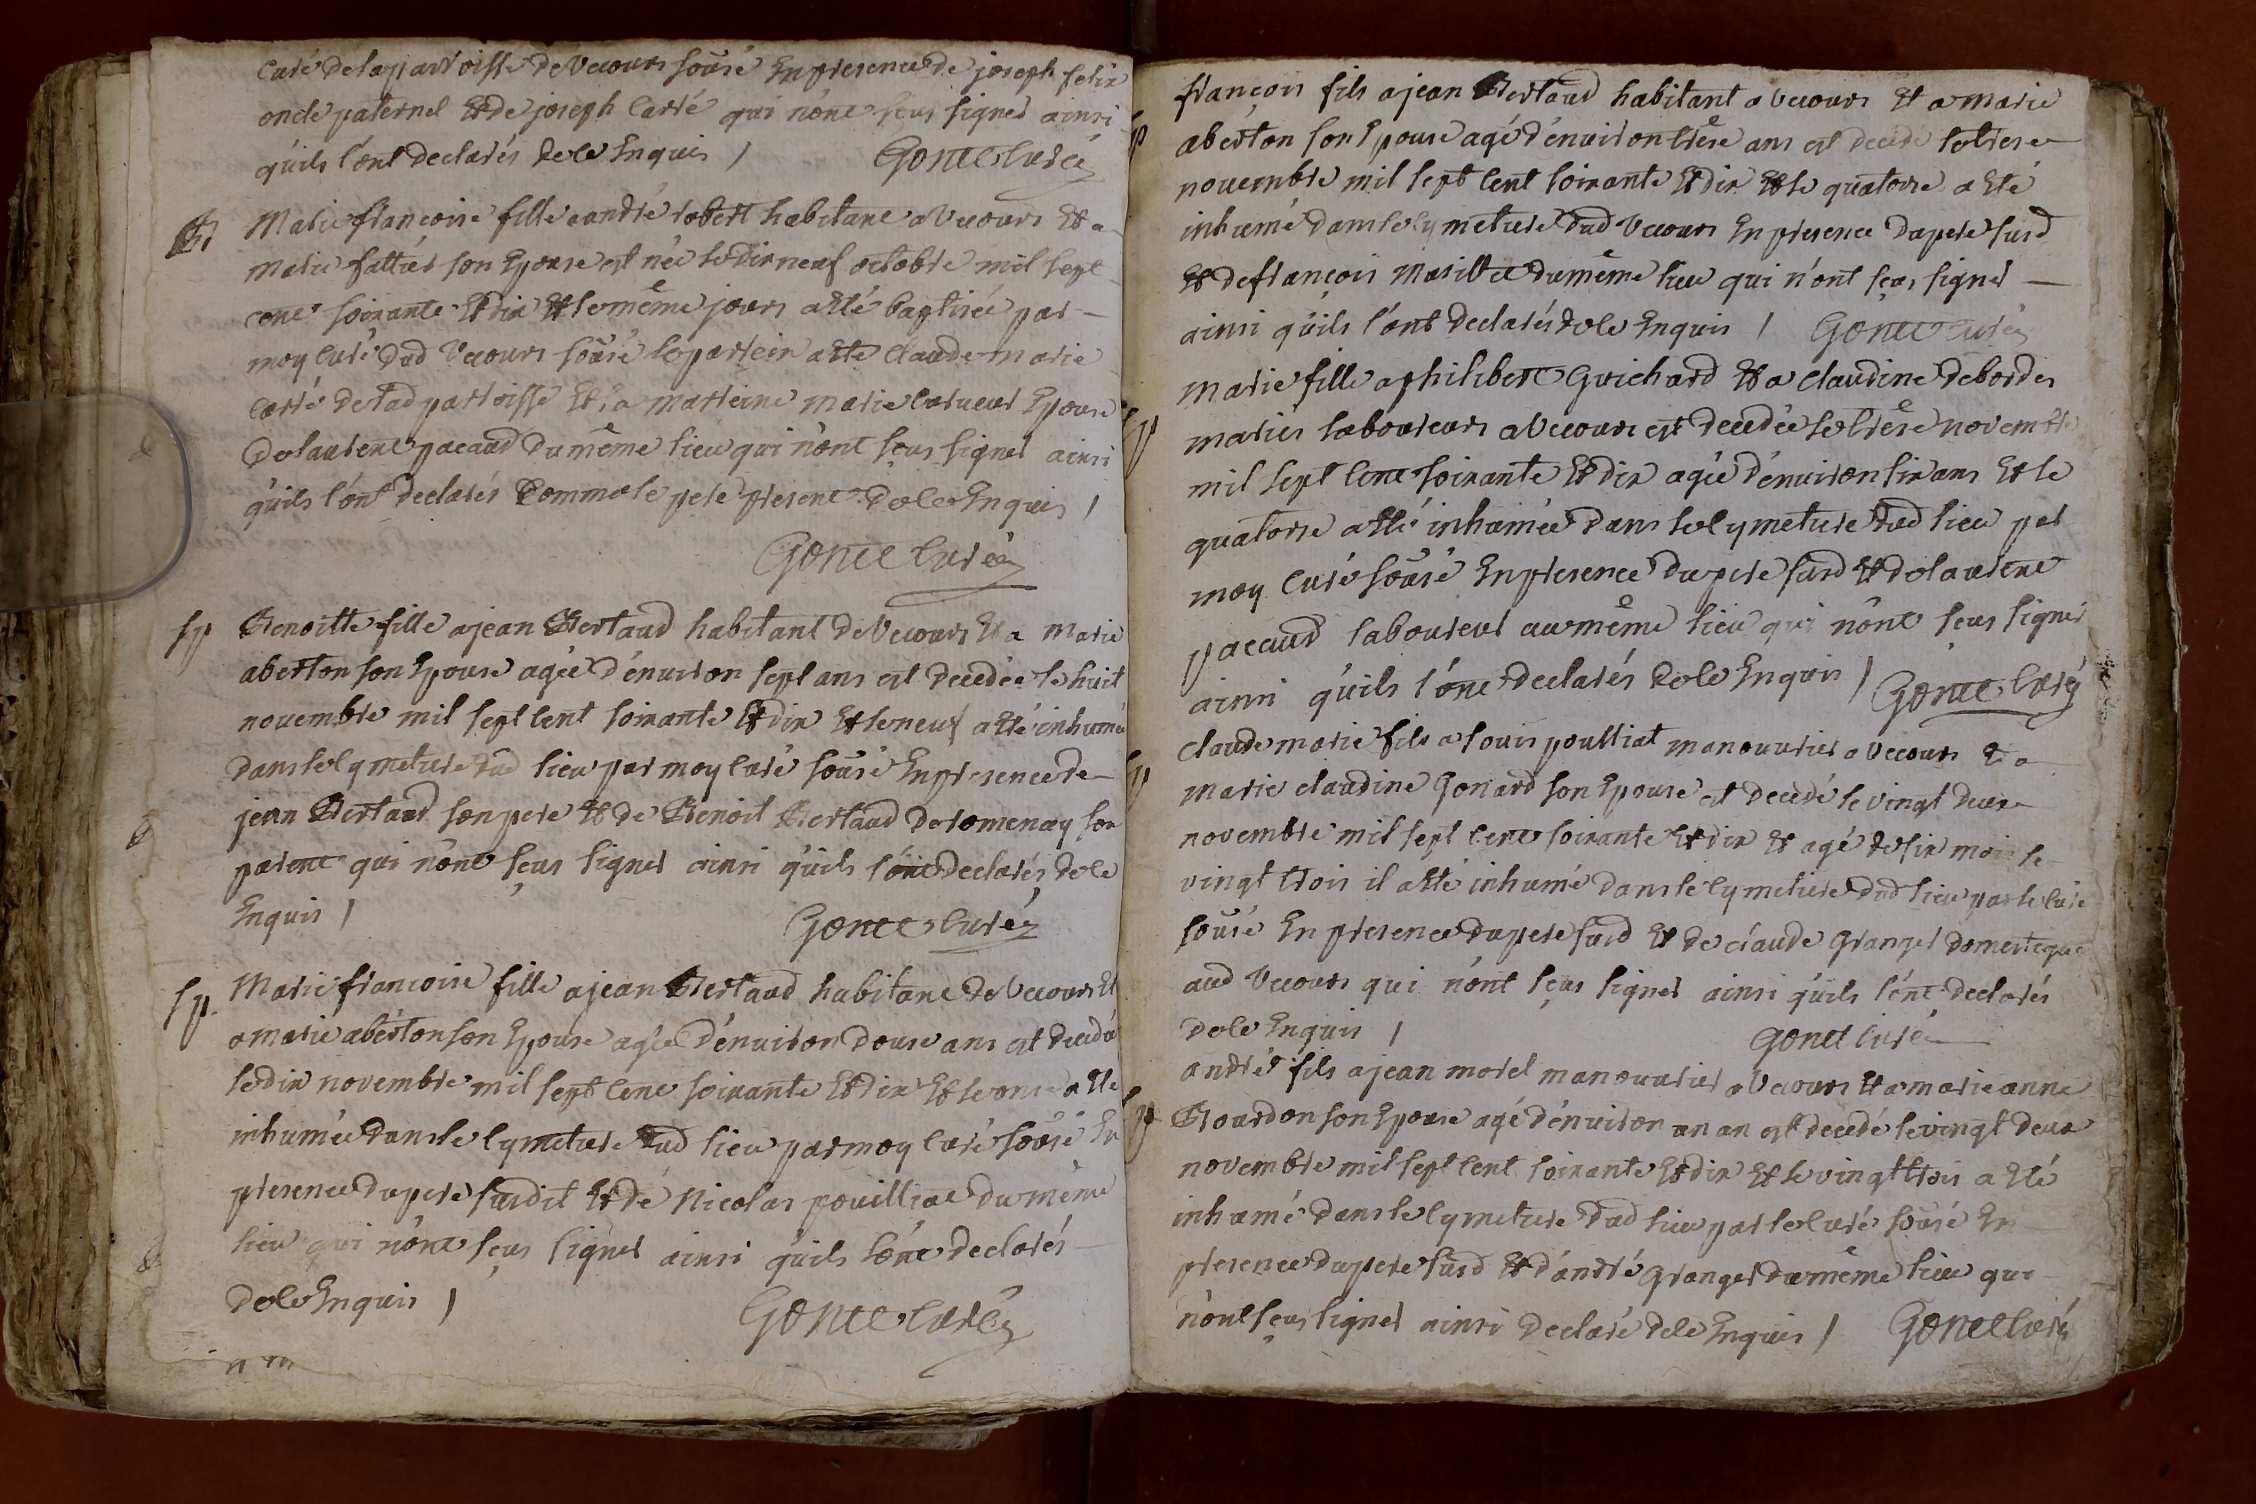 curé de la parroisse de Vecours sousé En presence de joseph felix
oncle paternel Et de joseph Carré qui n'ont sçus signer ainsi
qu'ils l'ont declarés de le Enquis / Gonet curé
B. Marie françoise fille a andré robert habitant a Vecours Et a
marie fattier son Epouse est née le dix neuf octobre mil sept
cent soixante Et dix Et le même jours a Eté baptisée par
moy curé dud Vecours sousé le parrein a Eté Claude marie
Carré de lad parroisse Et la marreine marie Epouse
de laurent pacaud du même lieu qui n'ont sçus signer ainsi
qu'ils l'ont declarés Comme le pere present de le Enquis /
Gonet curé
Sp Benoitte fille a jean Bertaud habitant de Vecours Et a Marie
aberton son Epouse agée d'environ sept ans est decedée le huit
novembre mil sept cent soixante Et dix Et le neuf a Eté inhumée
dans le cymetiere dud lieu par moy curé sousé En presence de
jean Bertaud son pere Et de Benoit Bertaud de romenay son
parent qui n'ont sçus signer ainsi qu'ils l'ont declarés de le
Enquis / Gonet curé
Sp. Marie françoise fille a jean Bertaud habitant de Vecours Et
a marie aberton son Epouse agée d'environ douse ans est decedée
le dix novembre mil sept cent soixante Et dix Et le onse a Eté
inhumée dans le cymetiere dud lieu par moy curé sousé En
presence du pere susdit Et de Nicolas pouilliat du même
lieu qui n'ont sçus signer ainsi qu'ils l'ont declarés
de le Enquis / Gonet curé
françois fils a jean Bertaud habitant a Vecours Et a marie
Sp aberton son Epouse agé d'environ trese ans est decedé le trese
novembre mil sept cent soixante Et dix Et le quatorse a Eté
inhumé dans le cymetiere dud Vecours En presence du pere susd
Et de françois du même lieu qui n'ont sçus signer
ainsi qu'ils l'ont declarés de le Enquis / Gonet curé
marie fille a philibert Guichard Et a Claudine debordes
Sp mariés laboureurs a Vecours est decedée le trese novembre
mil sept cent soixante Et dix agée d'environ six ans Et le
quatorse a Eté inhumée dans le cymetiere dud lieu par
moy curé sousé En presence du pere susd Et de laurent
pacaud laboureur au même lieu qui n'ont sçus signer
ainsi qu'ils l'ont declarés de le Enquis / Gonet curé
Claude marie fils a louis poulliat manouvrier a Vecours Et a
Sp marie claudine Gonard son Epouse est decedé le vingt deux
novembre mil sept cent soixante Et dix Et agé de six mois le
vingt trois il a Eté inhumé dans le cymetiere dud lieu par le curé
sousé En presence du pere susd Et de claude Granger domestique
aud Vecours qui n'ont sçus signer ainsi qu'ils l'ont declarés
de le Enquis / Gonet curé
andré fils a jean morel manouvrier a Vecours Et a marie anne
Sp Bourdon son Epouse agé d'environ un an est decedé le vingt deux
novembre mil sept cent soixante Et dix Et le vingt trois a Eté
inhumé dans le cymetiere dud lieu par le curé sousé En
presence du pere susd Et d'andré Granger du même lieu qui
n'ont sçus signer ainsi declaré de le Enquis / Gonet curé